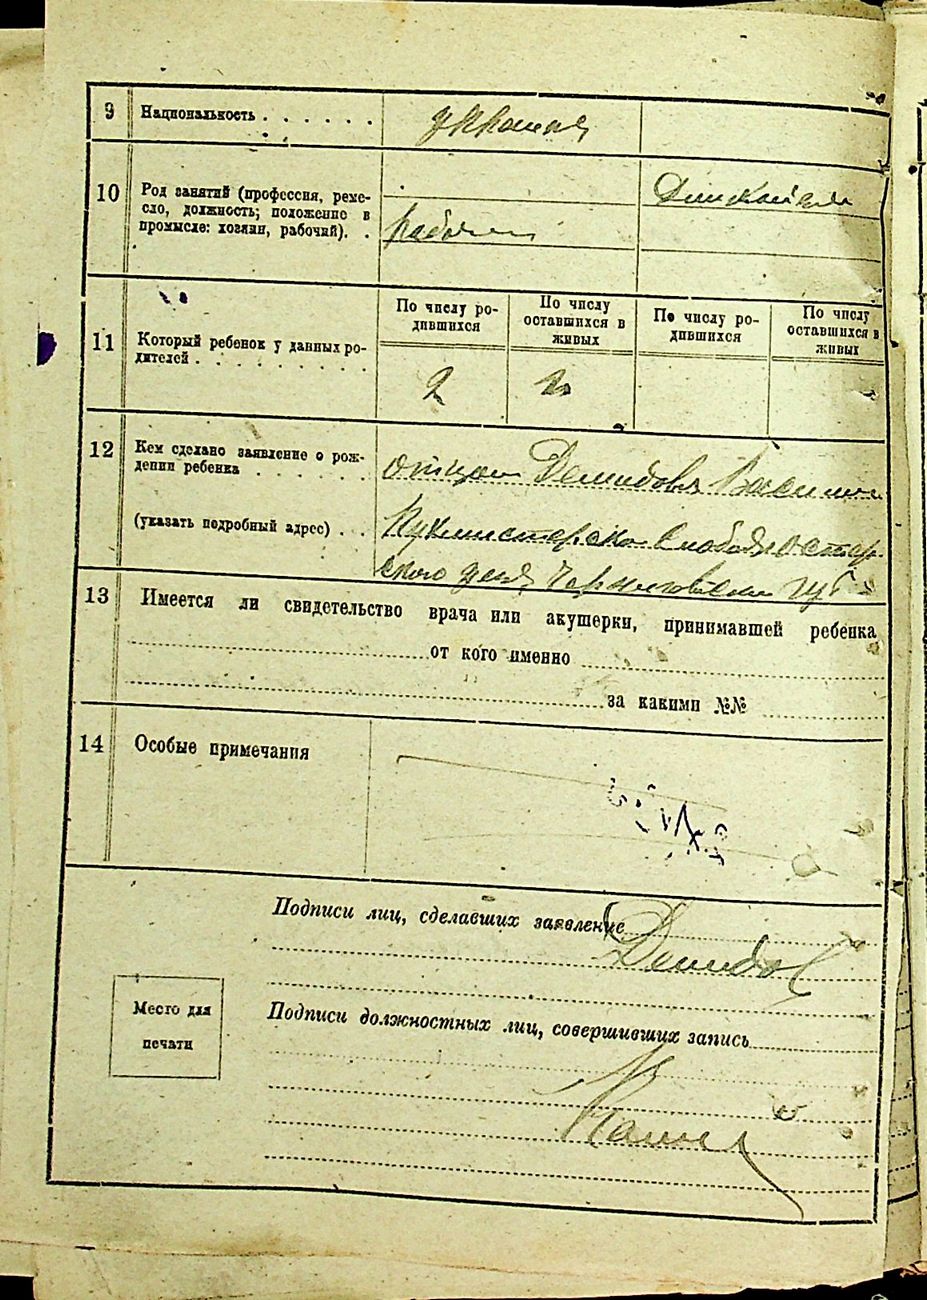 9 Национальность . . . . . .
10 Род занятий (профессия, реме-
сло, должность; положение в
промысле: хозяин, рабочий). .
рабочий
11 Который ребенок у данных ро-
дителей . . . . . . . . . .
По числу ро-
дившихся
По числу
оставшихся в
живых
По числу ро-
дившихся
По числу
оставшихся в
живых
2 2
12 Кем сделано заявление о рож-
дении ребенка . . . . . . .
отцом Демидовым
(указать подробный адрес) . . .
Слобода Остер-
ского уезда Черниговской губ
13 Имеется ли свидетельство врача или акушерки, принимавшей ребенка
от кого именно
за какими №№
14 Особые примечания
Подписи лиц, сделавших заявление
Демидов
Место для
печати
Подписи должностных лиц, совершивших запись